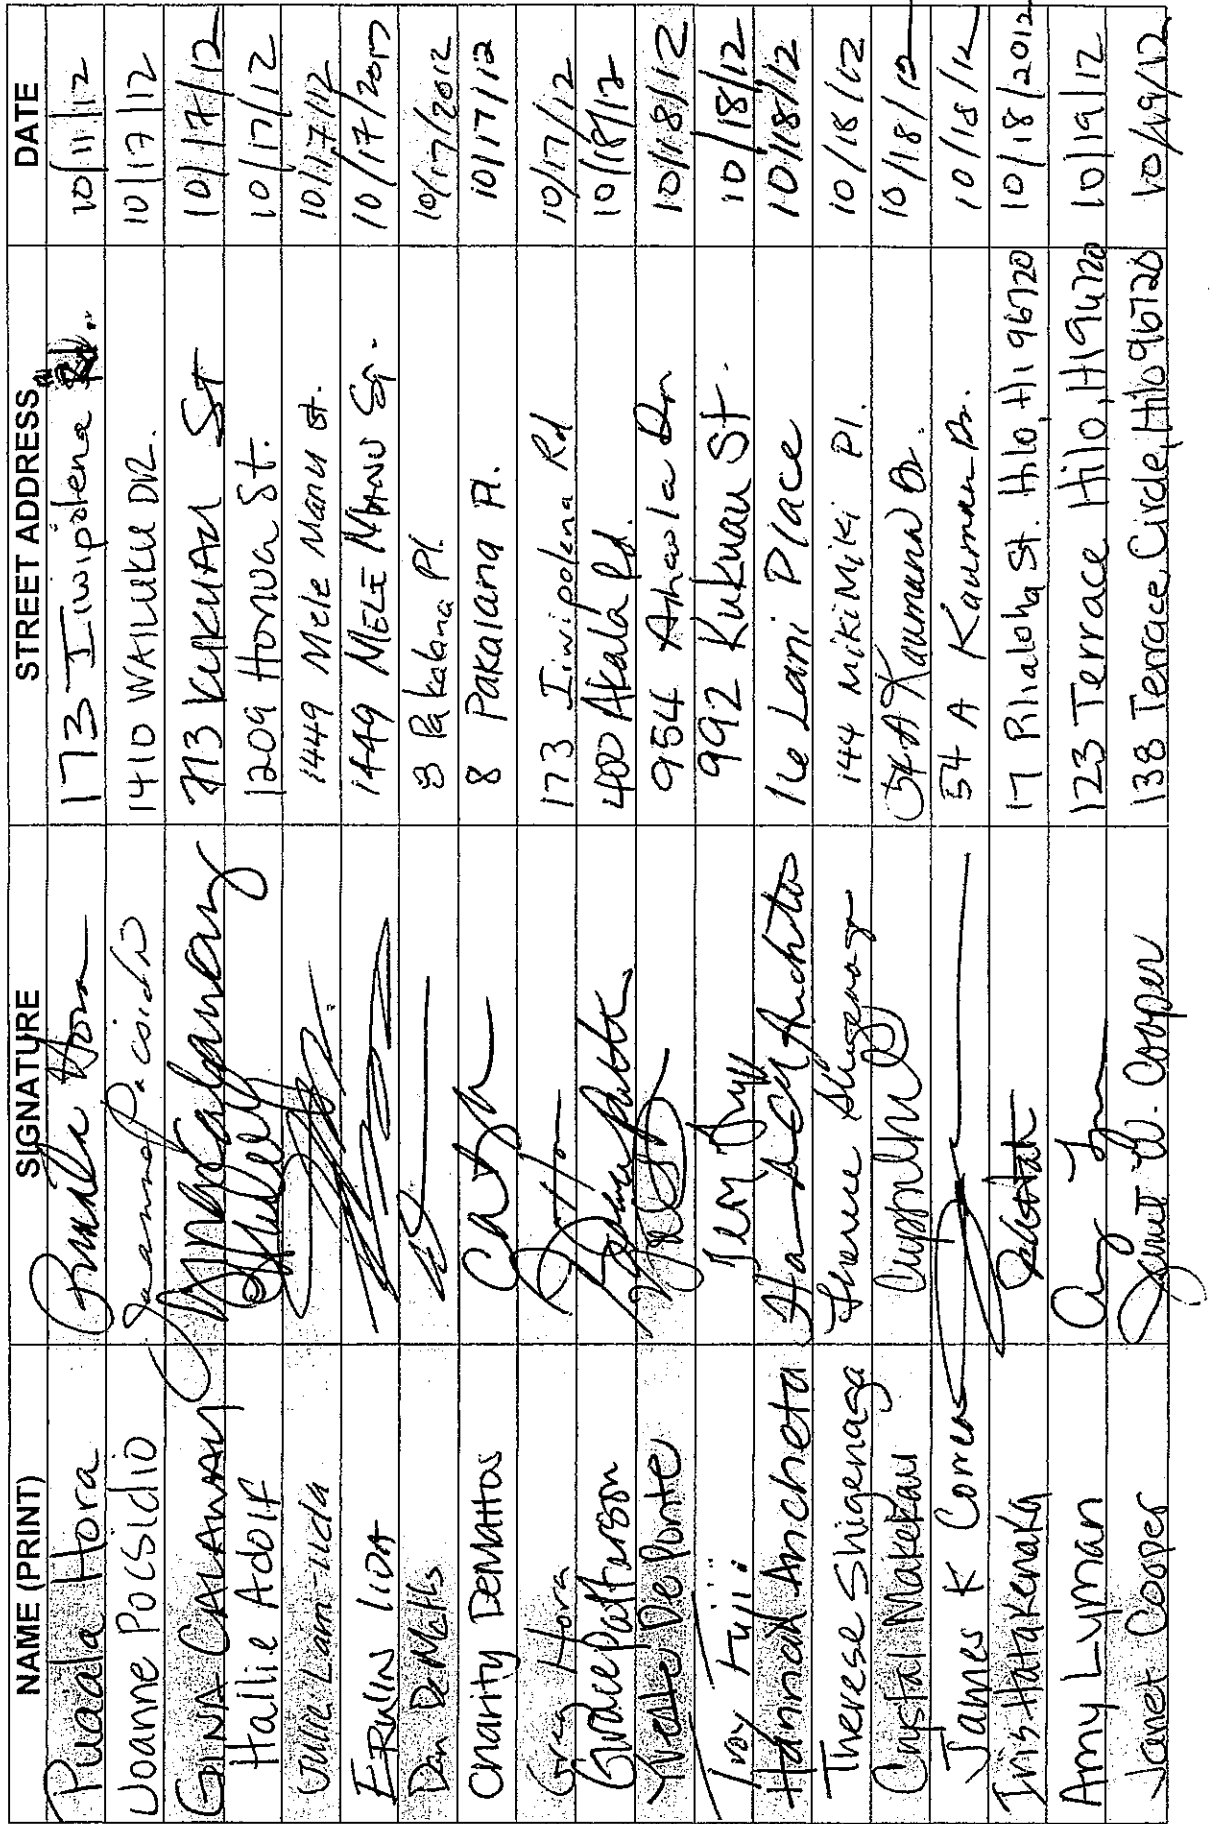 NAME (PRINT) SIGNATURE STREET ADDRESS DATE
Puaala Hora 173 Iiwipolena Rd. 10/11/12
Joanne Pocsidio 1410 WAILUKU DR. 10/17/12
GINA CALANAY 713 KUKUAU ST 10/17/12
Hallie Adolf 1209 Honua St. 10/17/12
Julie Lam-iida 1449 Mele Manu St. 10/17/12
ERULIN IIDA 1449 MELE MANU St. 10/17/2012
Don DeMatts 8 Pakalana Pl. 10/17/2012
Charity DeMattos 8 Pakalana Pl. 10/17/12
Greg Hora 173 Iiwipolena Rd 10/17/12
Grace Patterson 400 Akala Rd. 10/18/12
Yvette De Ponte 954 Ahaola Dr 10/18/12
Troy Fujii 992 Kukuau St. 10/18/12
Hannah Ancheta 16 Lani Place 10/18/12
Therese Shigenaga Therese Shigenaga 144 MikiMiki Pl. 10/18/12
Crystal Makekau 54A Kaumana Dr. 10/18/12
James K Correa 54 A Kaumana Dr. 10/18/12
Iris Hatakenaka 17 Pilialoha St. Hilo, HI 96720 10/18/2012
Amy Lyman 123 Terrace Hilo, HI 96720 10/19/12
Janet Cooper Janet W. Cooper 138 Terrace Circle, Hilo 96720 10/19/12